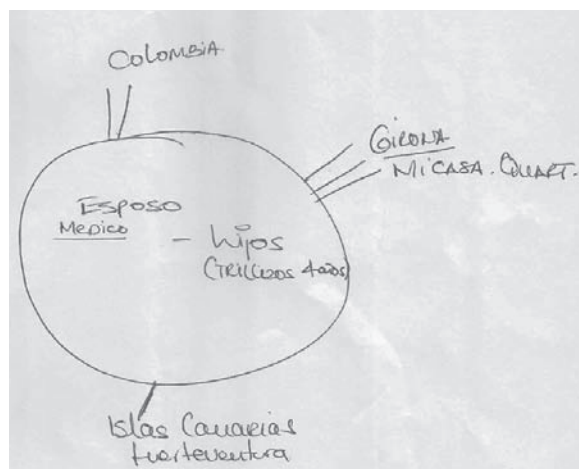 COLOMBIA
GIRONA
MI CASA. QUART.
ESPOSO
MEDICO
- hijos
(TRILLIZOS 4 años)
Islas Canarias
fuerteventura